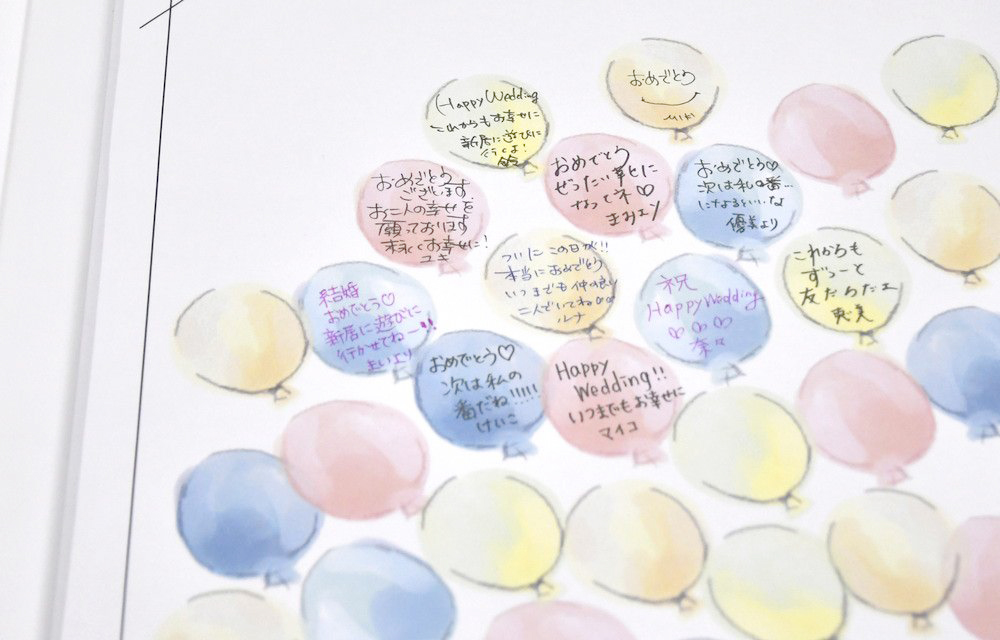 おめでとう
MIKI
Happy Wedding
これからもお幸せに
新居に遊びに
行くよ!
おめでとう
ぜったい幸せに
なってネ♡
まみより
おめでとう♡
次は私の番…
になるといいな
優美より
おめでとう
ございます。
お二人の幸せを
願っております
末永くお幸せに!
ユキ
ついにこの日が!!
本当におめでとう
いつまでも仲の良い
二人でいてね♡♡
ルナ
祝
Happy Wedding
♡♡♡
奈々
これからも
ずぅーっと
友だちだよ
恵美
結婚
おめでとう♡
新居に遊びに
行かせてねー!!
まいより
おめでとう♡
次は私の
番だね!!!!!
けいこ
Happy
Wedding!!
いつまでもお幸せに
マイコ